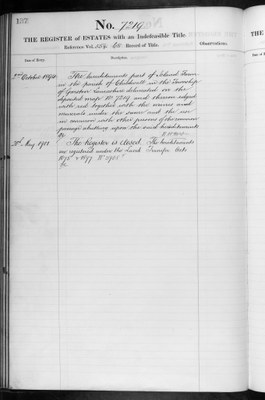 132
No. 7219
THE REGISTER of ESTATES with an Indefeasible Title
Reference Vol. Record of Title.
Date of Entry.
Description.
Observations.
2nd October 1890
The hereditaments part of Island
in the parish of Childwall in the Township
of Garston Lancashire delineated on the
deposited map No 7219 and thereon edged
with red together with the mines and
minerals under the same and the use
in common with other persons of the common
passage abutting upon the said hereditaments
&c
31st May 1901
The Register is closed. The hereditaments
are registered under the Land Transfer Acts
1875 & 1897